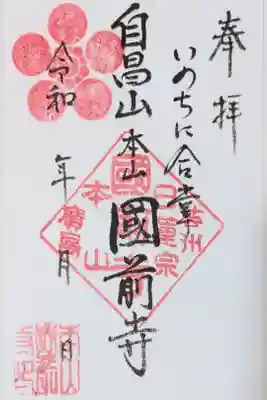 奉拝
いのちに合掌
自昌山
本山
國前寺
令和
年
月
日
日蓮宗
本山
廣島